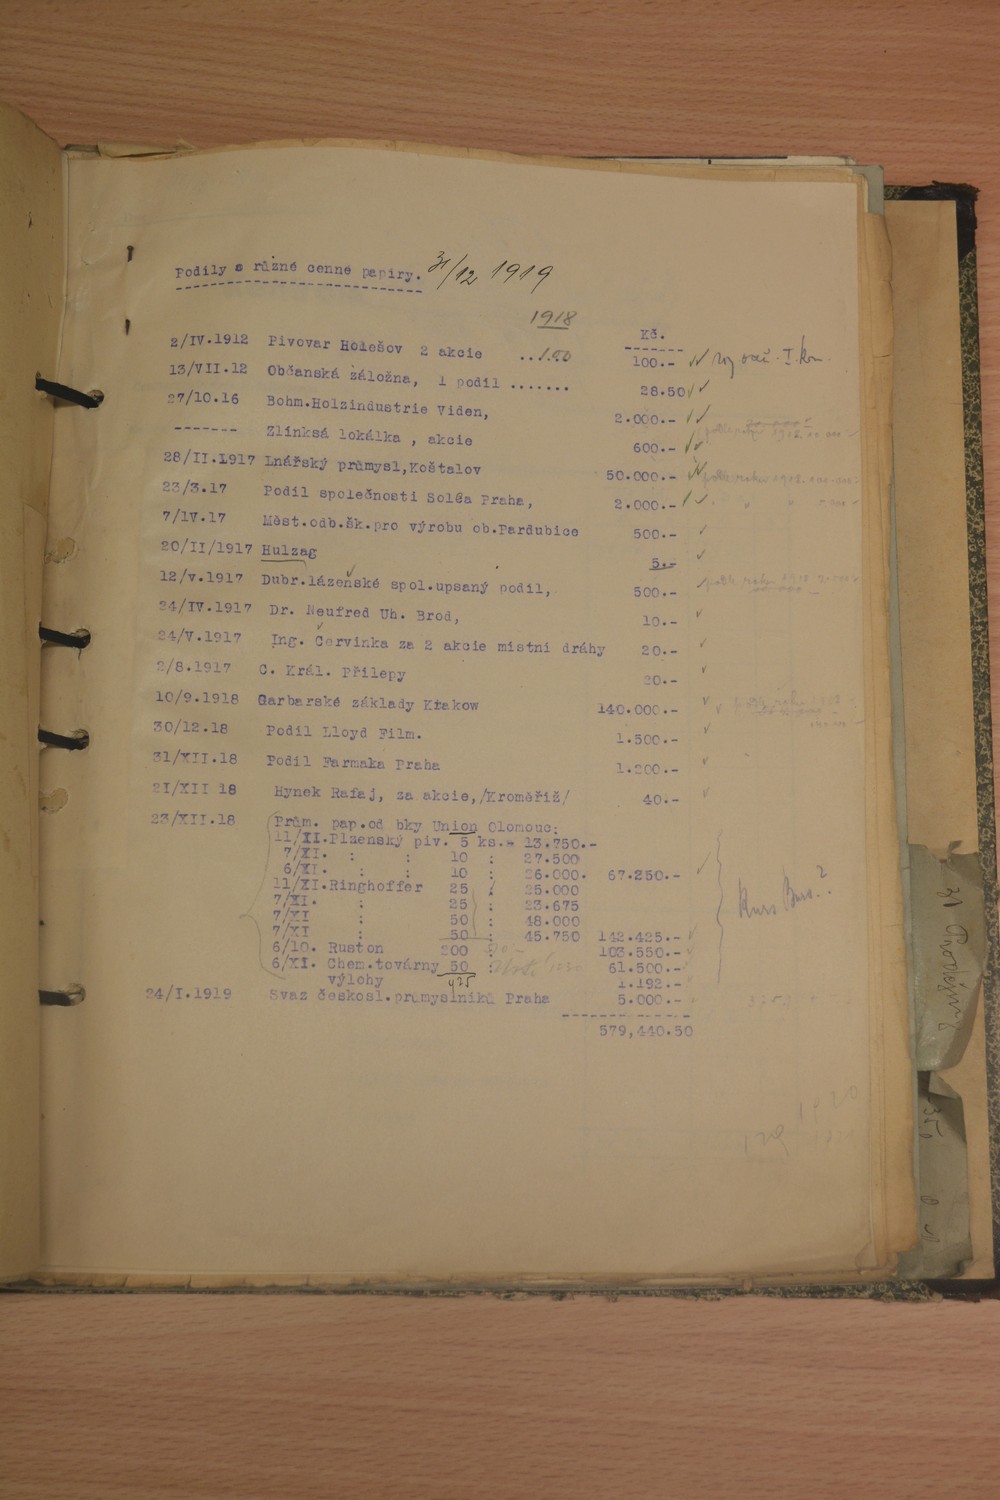 Podíly a různé cenné papíry. 31/12 1919
1918
Kč.
2/IV.1912 Pivovar Holešov 2 akcie ..100 100.-
13/VII.12 Občanská záložna, 1 podíl ....... 28.50
27/10.16 Bohm.Holzindustrie Viden, 2.000.-
------- Zlínksá lokálka , akcie 600.-
28/II.1917 Lnářský průmysl,Košťalov 50.000.-
23/3.17 Podíl společnosti Solga Praha, 2.000.-
7/IV.17 Měst.odb.šk.pro výrobu ob.Pardubice 500.-
20/II/1917 Hulzag 5.-
12/v.1917 Dubr.lázeňské spol.upsaný podíl, 500.-
24/IV.1917 Dr. Neufred Uh. Brod, 10.-
24/V.1917 Ing. Červinka za 2 akcie místní dráhy 20.-
2/8.1917 C. Král. Přílepy 20.-
10/9.1918 Garbarské základy Krakow 140.000.-
30/12.18 Podíl Lloyd Film. 1.500.-
31/XII.18 Podíl Farmaka Praha 1.200.-
21/XII 18 Hynek Rafaj, za akcie,/Kroměříž/ 40.-
23/XII.18 Prům. pap.od bky Union Olomouc:
11/XI.Plzenský piv. 5 ks.- 13.750.-
7/XI. : : 10 : 27.500
6/XI. : : 10 : 26.000. 67.250.-
11/XI.Ringhoffer 25 : 25.000
7/XI. : 25 : 23.675
7/XI : 50 : 48.000
7/XI : 50 : 45.750 142.425.-
6/10. Ruston 200 103.550.-
6/XI. Chem.továrny 50 : 61.500.-
výlohy 425 1.192.-
24/I.1919 Svaz českosl.průmyslníků Praha 5.000.-
579,440.50
Kurs Burs.?